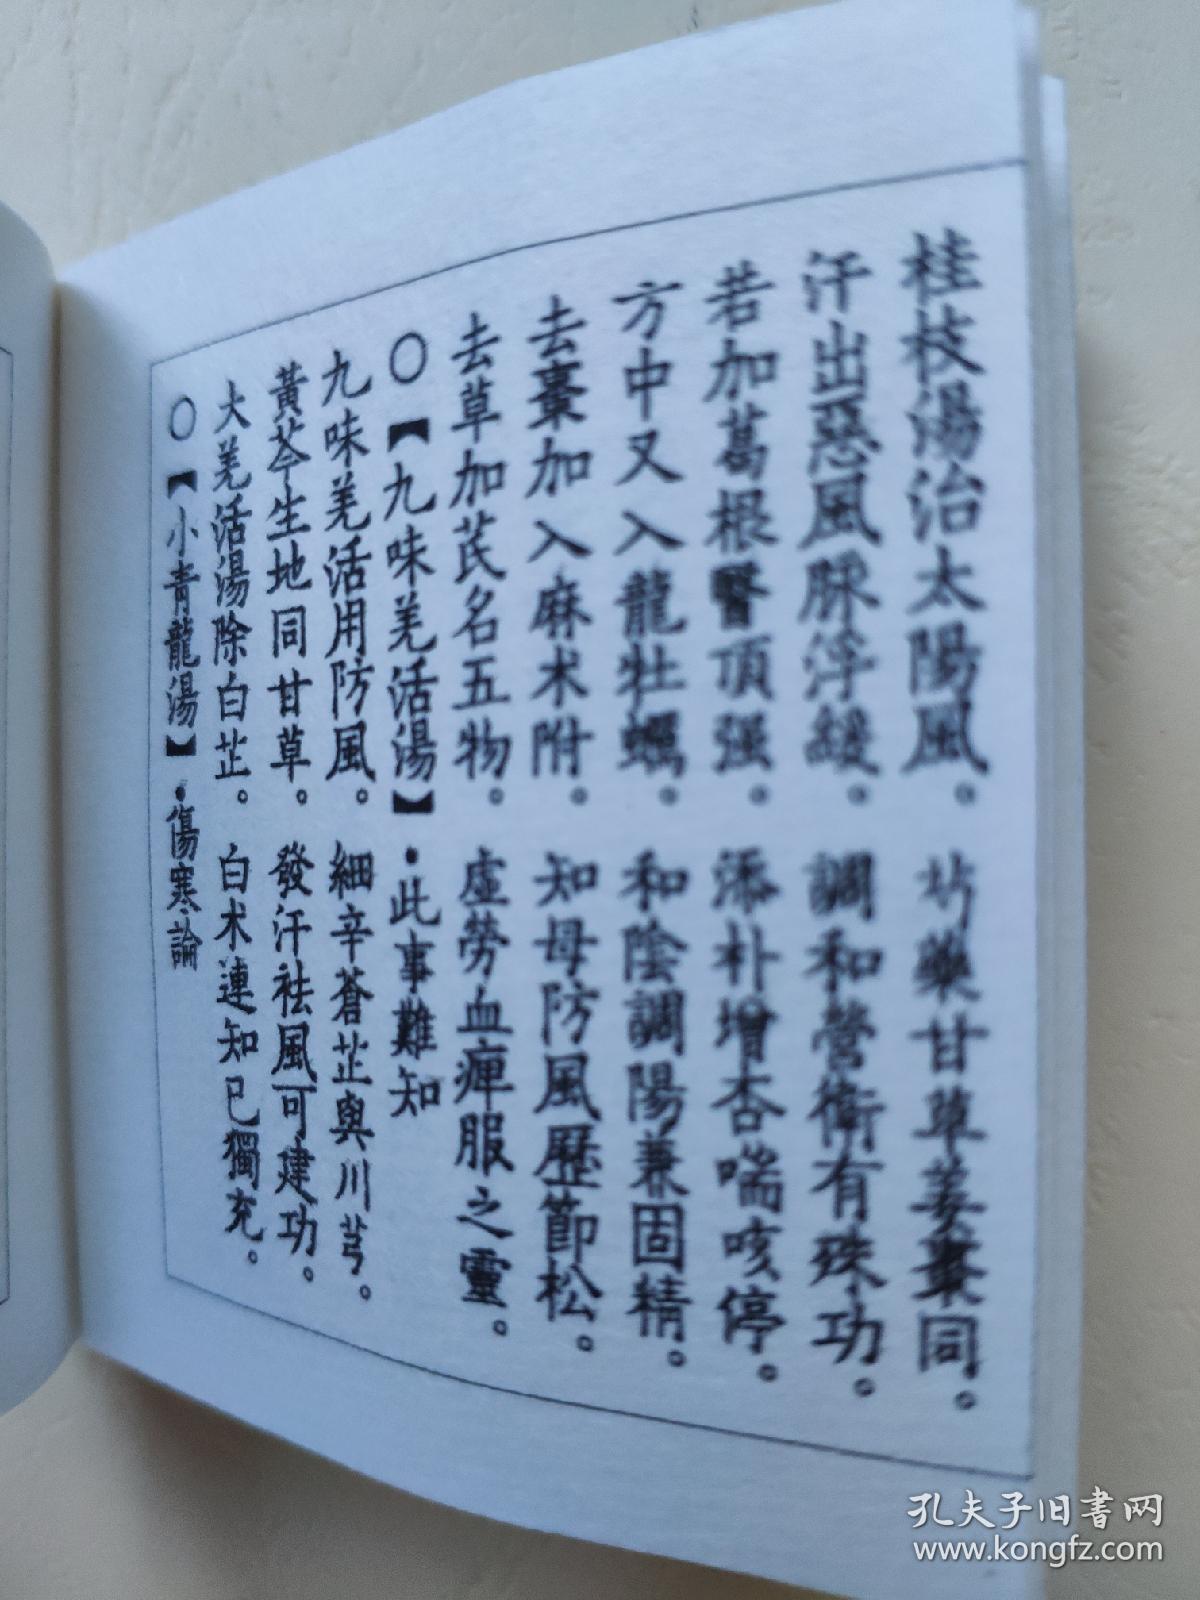 桂枝湯治太陽風。芍藥甘草姜棗同。
汗出惡風脈浮緩。調和營衛有殊功。
若加葛根醫項强。添朴增杏喘咳停。
方中又入龍牡蠣。和陰調陽兼固精。
去棗加入麻术附。知母防風歷節松。
去草加芪名五物。虛勞血痺服之靈。
〇【九味羌活湯】·此事難知
九味羌活用防風。細辛蒼芷與川芎。
黃芩生地同甘草。發汗祛風可建功。
大羌活湯除白芷。白术連知已獨充。
〇【小青龍湯】·傷寒論
孔夫子旧书网
www.kongfz.com